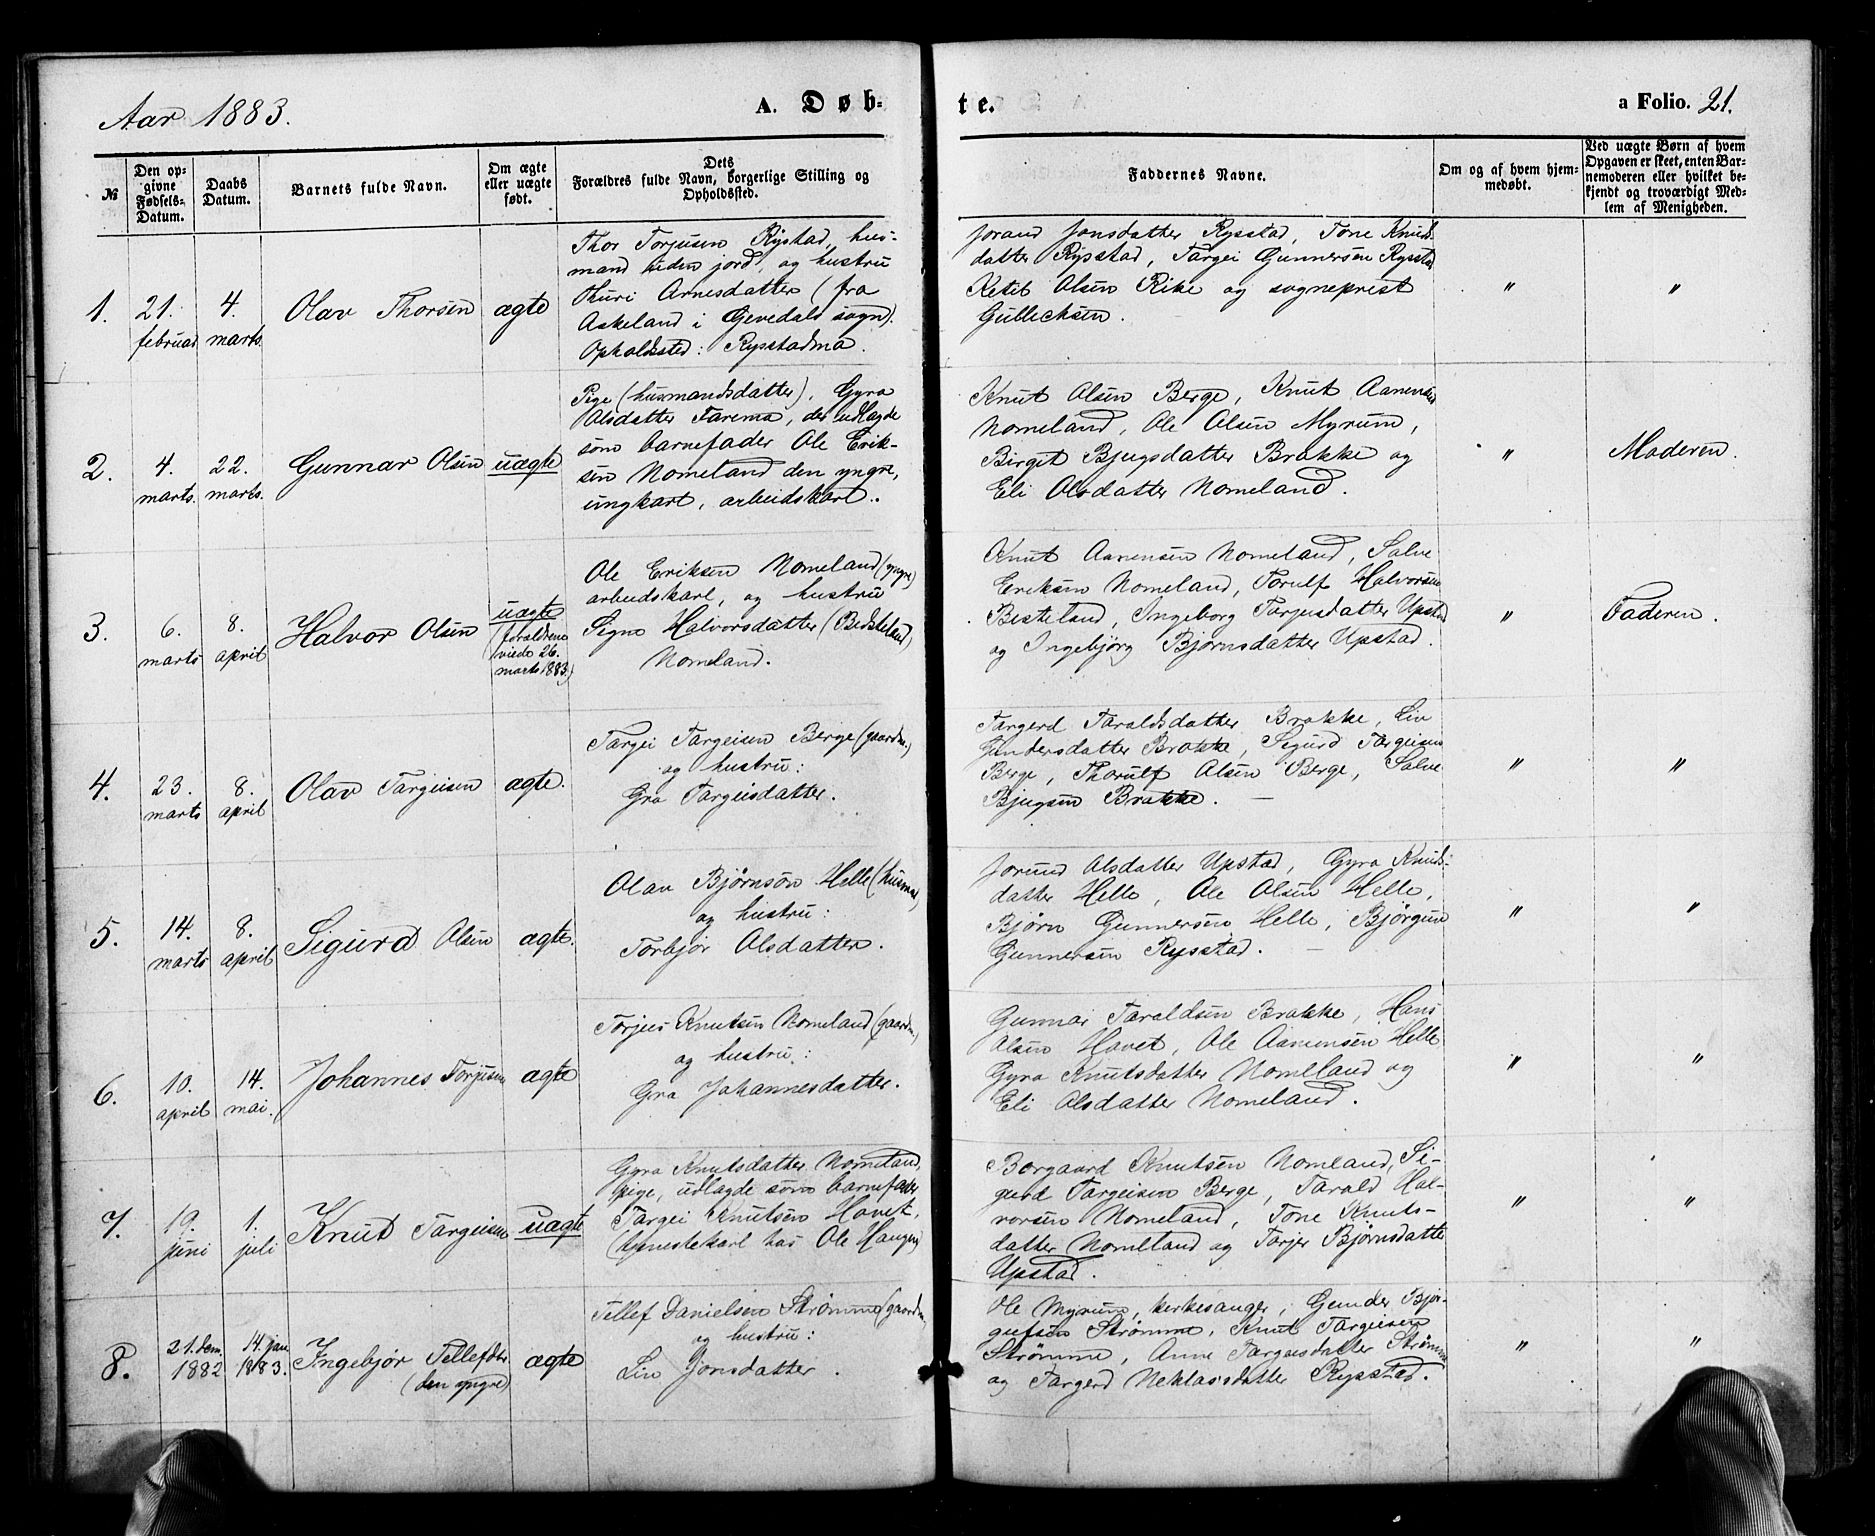 Aar 1883.
A. Døb-
te.
a Folio. 21.
№
Den op-
givne
Fødsels-
Datum.
Daabs
Datum.
Barnets fulde Navn.
Om ægte
eller uægte
født.
Dets
Forældres fulde Navn, borgerlige Stilling og
Opholdssted.
Faddernes Navne.
Om og af hvem hjem-
medøbt.
Ved uægte Børn af hvem
Opgaven er skeet, enten Bar-
nemoderen eller hvilket be-
kjendt og troværdigt Med-
lem af Menigheden.
1.
21.
februar
4.
marts.
Olav Thorsen
ægte
Thor Torjusen Rystad, hus-
mand uden jord, og hustru
Thuri Arnesdatter (fra
Askeland i Gjevedals sogn).
Opholdssted: Rysstadmo.
Jorand Jonsdatter Rysstad, Tone Knuds-
datter Rysstad, Targei Gunnersen Rysstad
Ketil Olsen Rike og sogneprest
Gullichsen.
"
"
2.
4.
marts.
22.
marts.
Gunnar Olsen
uægte
Pige (husmandsdatter), Gyro
Olsdatter Faremo, der udlagde
som barnefader Ole Erik-
sen Nomeland den yngre,
ungkarl, arbeidskarl.
Knut Olsen Berge, Knut Aanensen
Nomeland, Ole Olsen Myrum,
Birgit Bjugsdatter Brokke og
Eli Olsdatter Nomeland.
"
Moderen.
3.
6.
marts
8.
april
Halvor Olsen
uægte
(forældrene
viede 26.
marts 1883.)
Ole Eriksen Nomeland (yngre)
arbeidskarl, og hustru
Signe Halvorsdatter (Bedsteland)
Nomeland.
Knut Aanensen Nomeland, Salve
Eriksen Nomeland, Torulf Halvorsen
Besteland, Ingeborg Tarjusdatter Upstad
og Ingebjørg Bjørnsdatter Upstad.
"
Faderen.
4.
23.
marts
8.
april
Olav Targeisen
ægte.
Targei Targeisen Berge (gaardm.)
og hustru:
Gro Targeisdatter.
Targerd Taraldsdatter Brokke, Liv
Gundersdatter Brokke, Sigurd Targeisen
Berge, Thorulf Olsen Berge, Salve
Bjugsen Brokke. —
"
"
5.
14.
marts
8.
april
Sigurd Olsen
ægte.
Olav Bjørnsøn Helle (husmand)
og hustru:
Torbjør Olsdatter.
Jorund Olsdatter Upstad, Gyro Knuds-
datter Helle, Ole Olsen Helle,
Bjørn Gunnersen Helle, Bjørgun
Gunnersen Rysstad. —
"
"
6.
10.
april
14.
mai.
Johannes Torjusen
ægte
Torjus Knutsen Nomeland (gaardm.)
og hustru:
Gro Johannesdatter.
Gunnar Taraldsen Brokke, Hans
Olsen Hovet, Ole Aanensen Helle
Gyro Knutsdatter Nomeland og
Eli Olsdatter Nomeland.
"
"
7.
19.
juni
1.
juli
Knut Targeisen
uægte
Gyro Knutsdatter Nomeland,
pige, udlagde som barnefader
Targei Knutsen Hovet,
(tjenestekarl hos Ole Haugen)
Borgaard Knutsen Nomeland, Si-
gurd Targeisen Berge, Tarald Hal-
vorsen Nomeland, Tone Knuts-
datter Nomeland og Torjer Bjørnsdatter
Upstad.
"
"
8.
21. dem.
1882
14. jan.
1883.
Ingebjør Tellefdtr
(den yngre)
ægte
Tellef Danielsen Strømme (gaardm.)
og hustru:
Liv Jonsdatter.
Ole Myrum, kirkesanger, Gunder Bjør-
gufsen Strømme, Knut Targeisen
Strømme, Anne Targeisdatter Strømme
og Targerd Neklasdatter Rysstad.
"
"